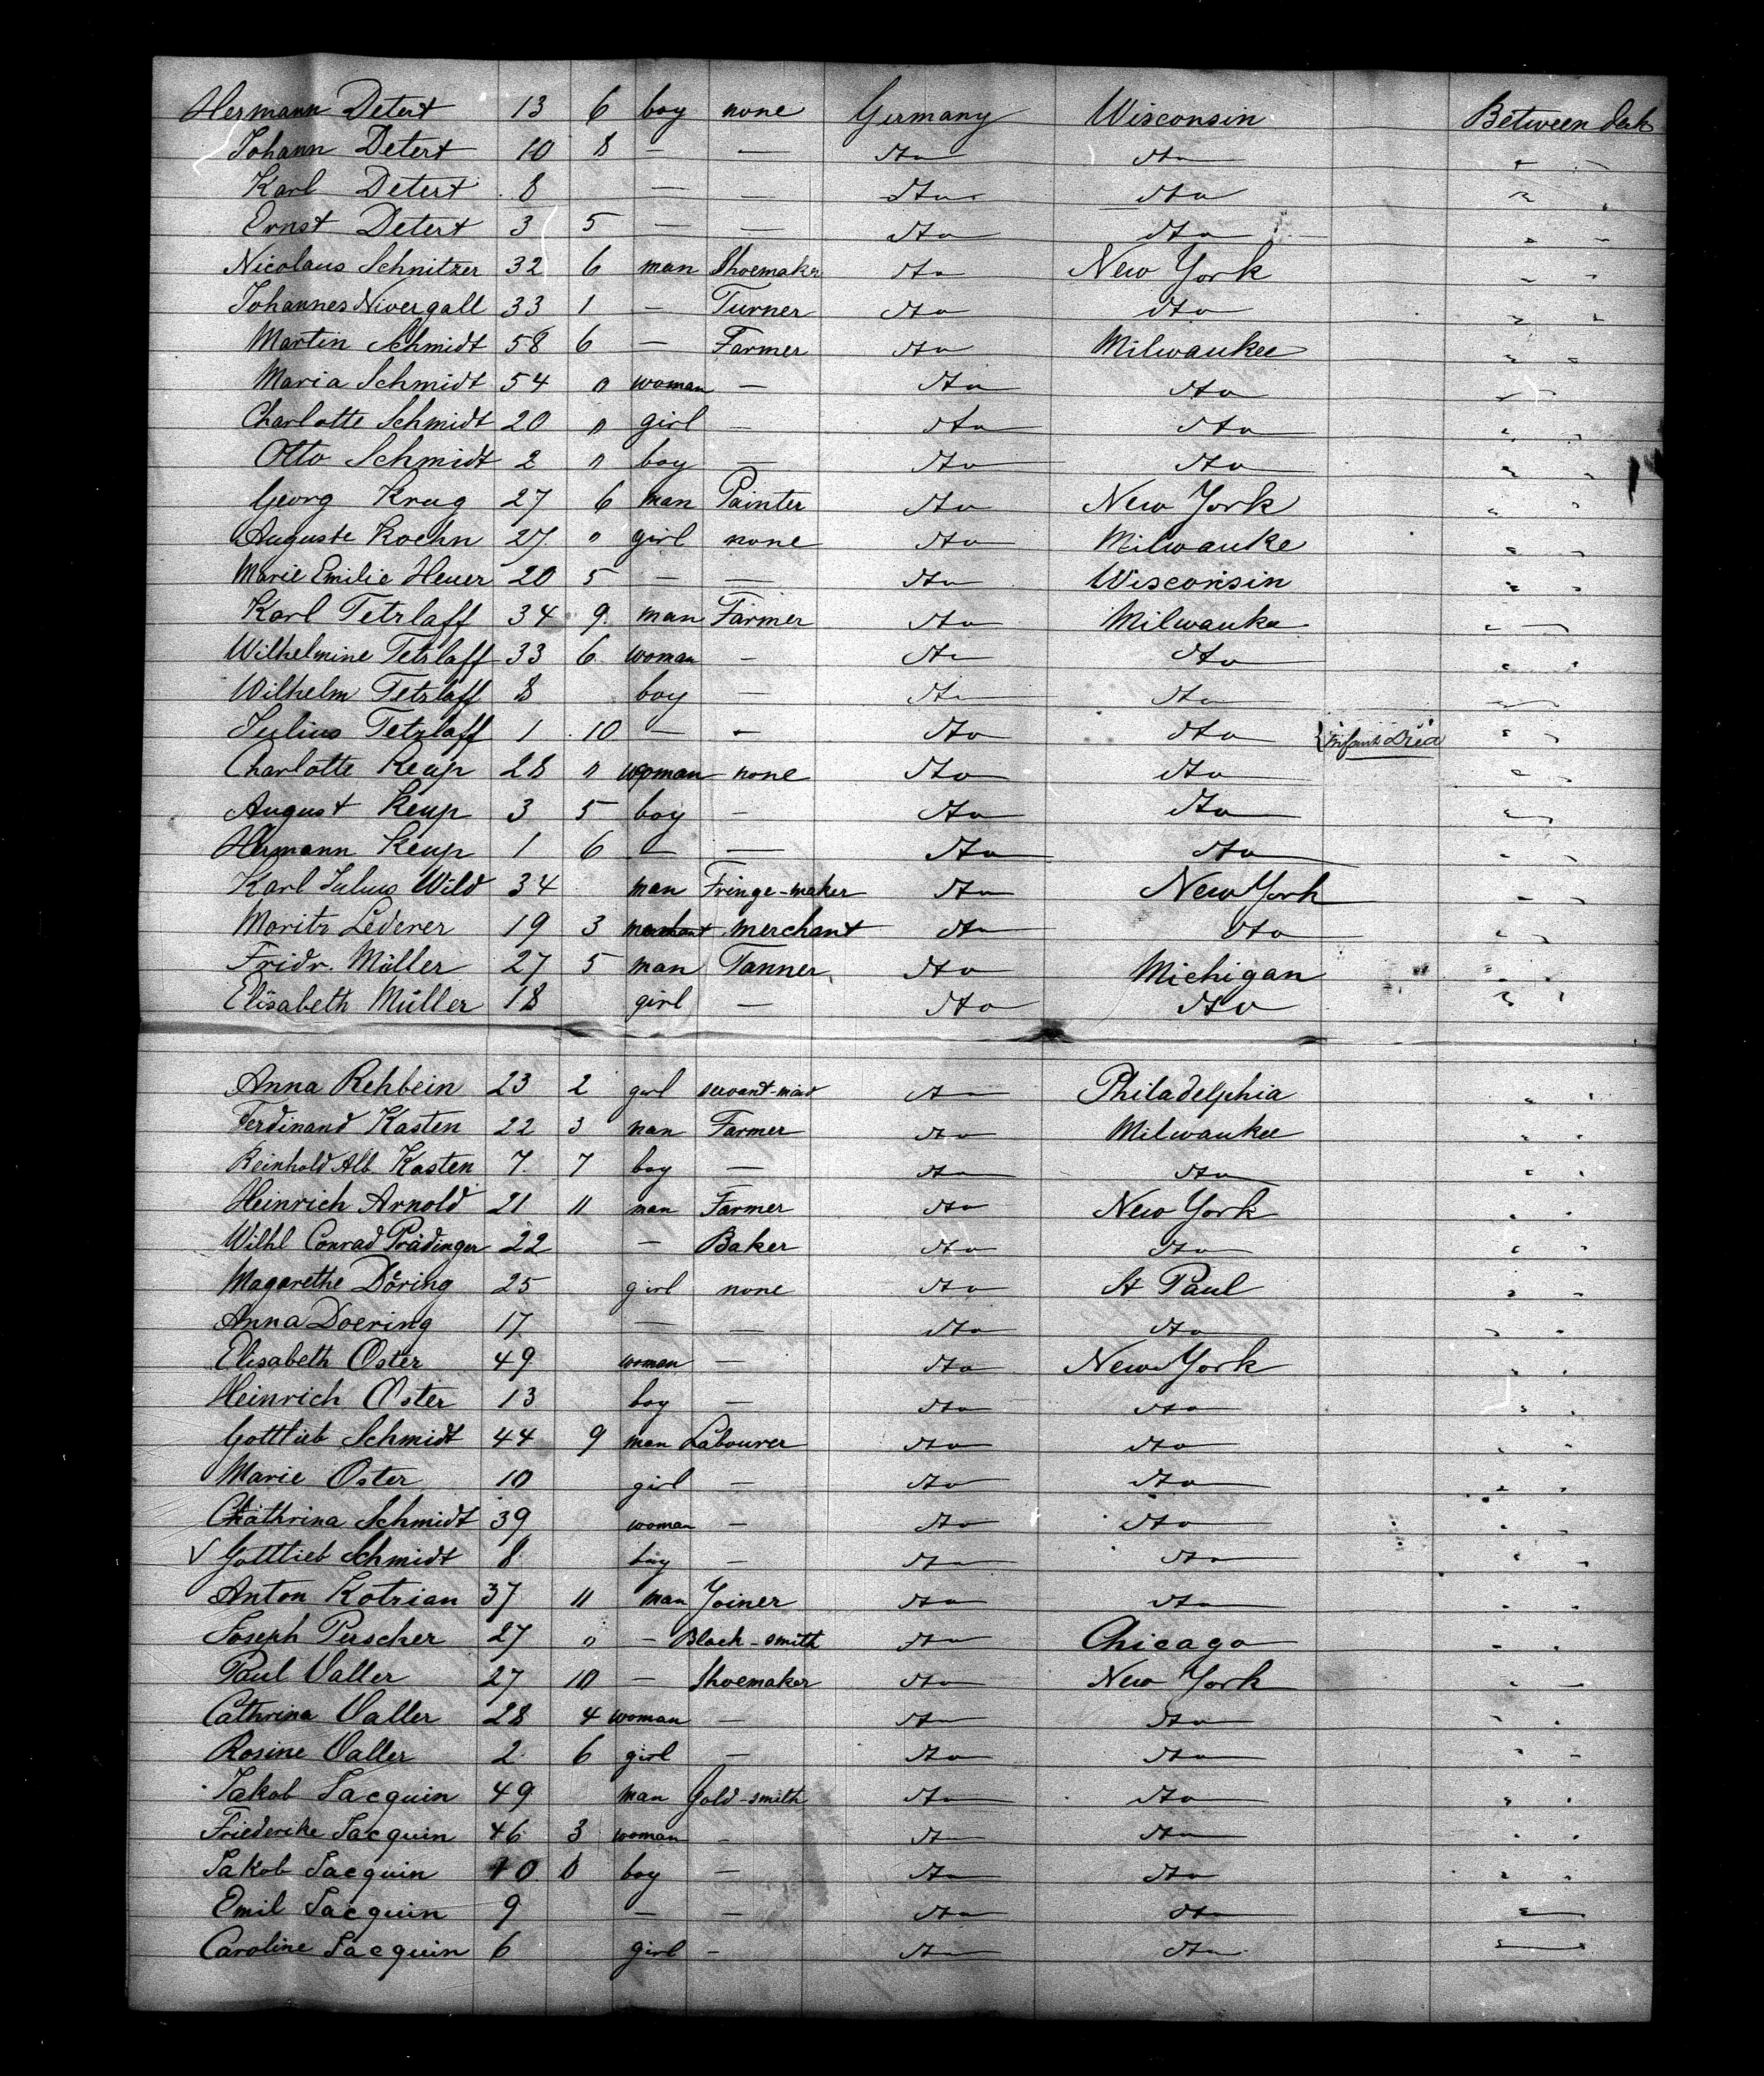 Hermann Detert 13 6 boy none Germany Wisconsin Between deck
Johann Detert 10 8 — — dto dto " "
Karl Detert 8 — — dto dto " "
Ernst Detert 3 5 — — dto dto " "
Nicolaus Schnitzer 32 6 man Shoemaker dto New York " "
Johannes Nivergall 33 1 — Turner dto dto " "
Martin Schmidt 58 6 — Farmer dto Milwaukee " "
Maria Schmidt 54 " woman — dto dto " "
Charlotte Schmidt 20 " girl — dto dto " "
Otto Schmidt 2 " boy — dto dto " "
Georg Krug 27 6 man Painter dto New York " "
Auguste Koehn 27 " girl none dto Milwauke " "
Marie Emilie Heuer 20 5 — — dto Wisconsin " "
Karl Tetzlaff 34 9 man Farmer dto Milwauke " "
Wilhelmine Tetzlaff 33 6 woman — dto dto " "
Wilhelm Tetzlaff 8 boy — dto dto " "
Julius Tetzlaff 1 10 — — dto dto Infant Died " "
Charlotte Keup 28 " woman none dto dto " "
August Keup 3 5 boy — dto dto " "
Hermann Keup 1 6 — — dto dto " "
Karl Julius Wild 34 man Fringe-maker dto New York " "
Moritz Lederer 19 3 merchant merchant dto dto " "
Fridr. Müller 27 5 man Tanner dto Michigan " "
Elisabeth Müller 18 girl — dto dto " "
Anna Rehbein 23 2 girl servant-maid dto Philadelphia " "
Ferdinand Kasten 22 3 man Farmer dto Milwaukee " "
Reinhold Alb Kasten 7 7 boy — dto dto " "
Heinrich Arnold 21 11 man Farmer dto New York " "
Wilhl Conrad Prädinger 22 — Baker dto dto " "
Magarethe Döring 25 girl none dto St Paul " "
Anna Doering 17 — — dto dto " "
Elisabeth Oster 49 woman — dto New York " "
Heinrich Oster 13 boy — dto dto " "
Gottlieb Schmidt 44 9 man Labourer dto dto " "
Marie Oster 10 girl — dto dto " "
Chathrina Schmidt 39 woman — dto dto " "
√ Gottlieb Schmidt 8 boy — dto dto " "
Anton Kotrian 37 11 man Joiner dto dto " "
Joseph Perscher 27 " — Black-smith dto Chicago " "
Paul Valler 27 10 — Shoemaker dto New York " "
Cathrina Valler 28 4 woman — dto dto " "
Rosine Valler 2 6 girl — dto dto " "
Jakob Jacquin 49 man Gold-smith dto dto " "
Friederike Jacquin 46 3 woman — dto dto " "
Jakob Jacquin 10 boy — dto dto " "
Emil Jacquin 9 — — dto dto " "
Caroline Jacquin 6 girl — dto dto " "